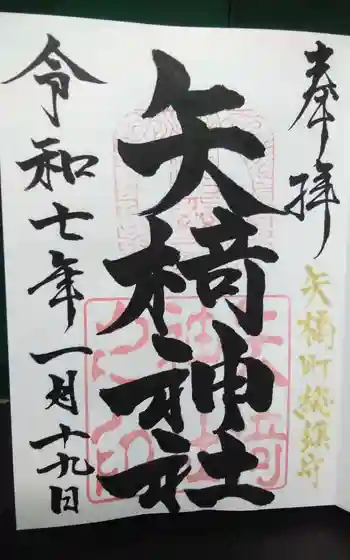 奉拝
矢橋町総鎮守
矢椅神社
令和七年一月十九日